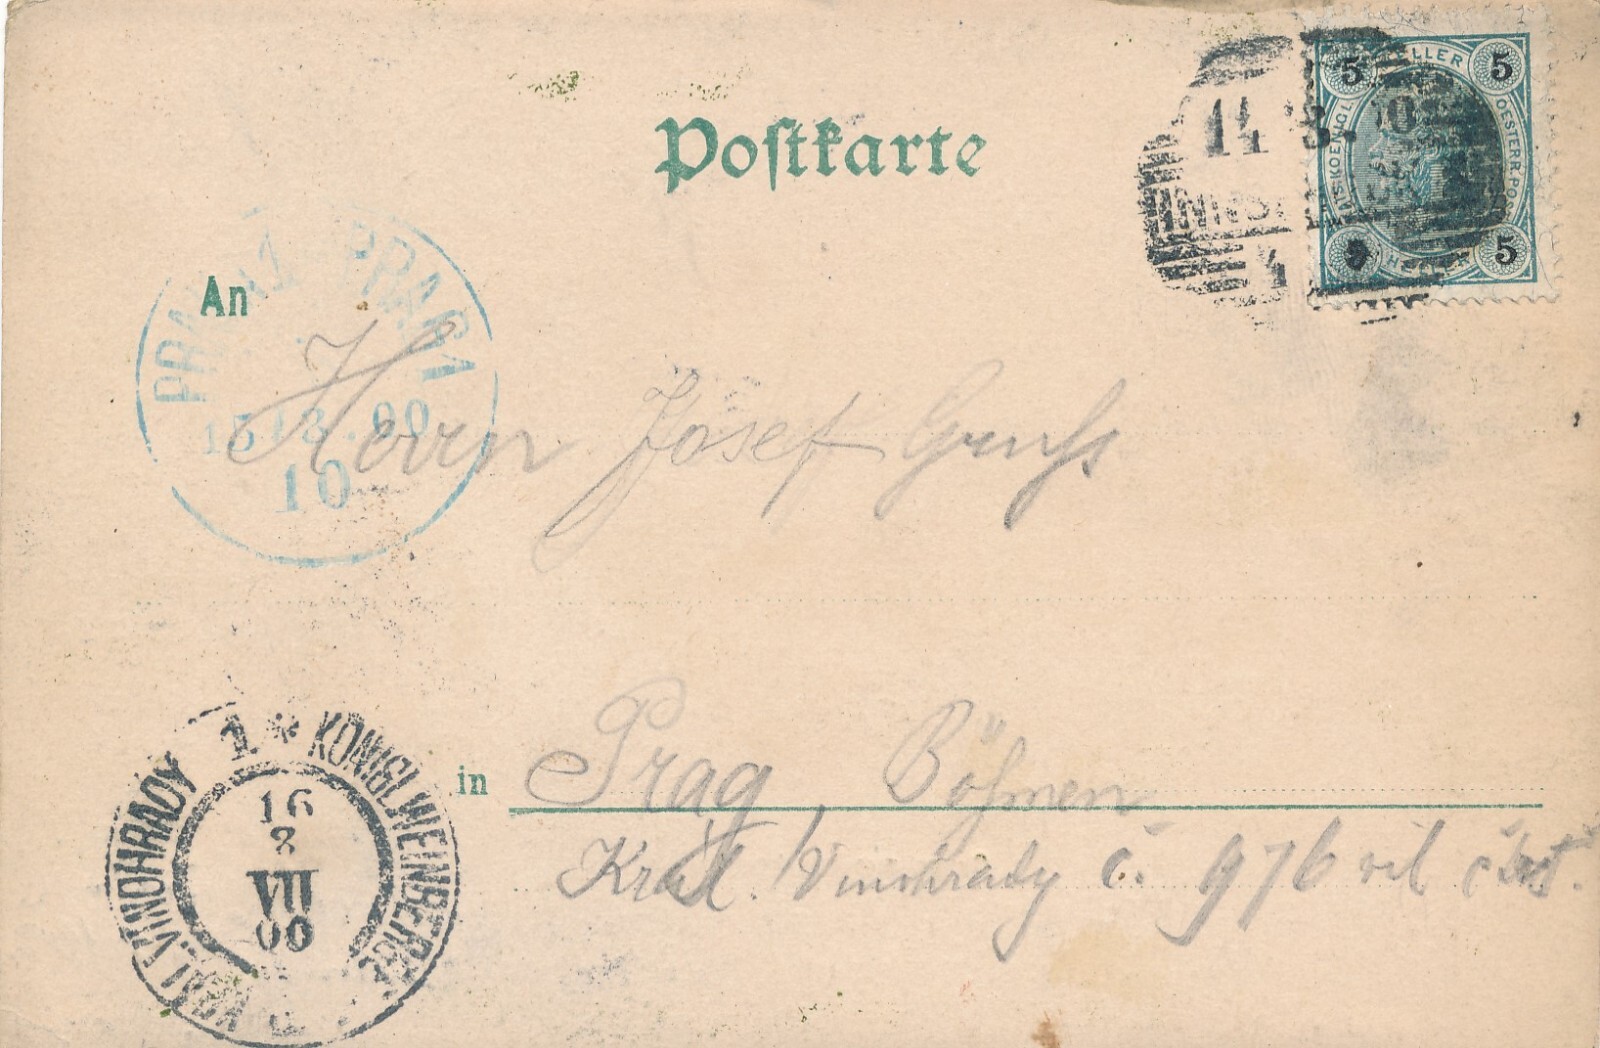 Postkarte
5 HELLER 5
OESTERR. POST
5 5
14 8. 0
INNS
4
PRAHA 1 PRAG 1
15/8.00
10
An
Herrn Josef
in Prag, Böhmen
Král. Vinohrady č. 976 vil část.
KRÁL. VINOHRADY 1 * KÖNIGL. WEINBERGE
16
8
VII
00